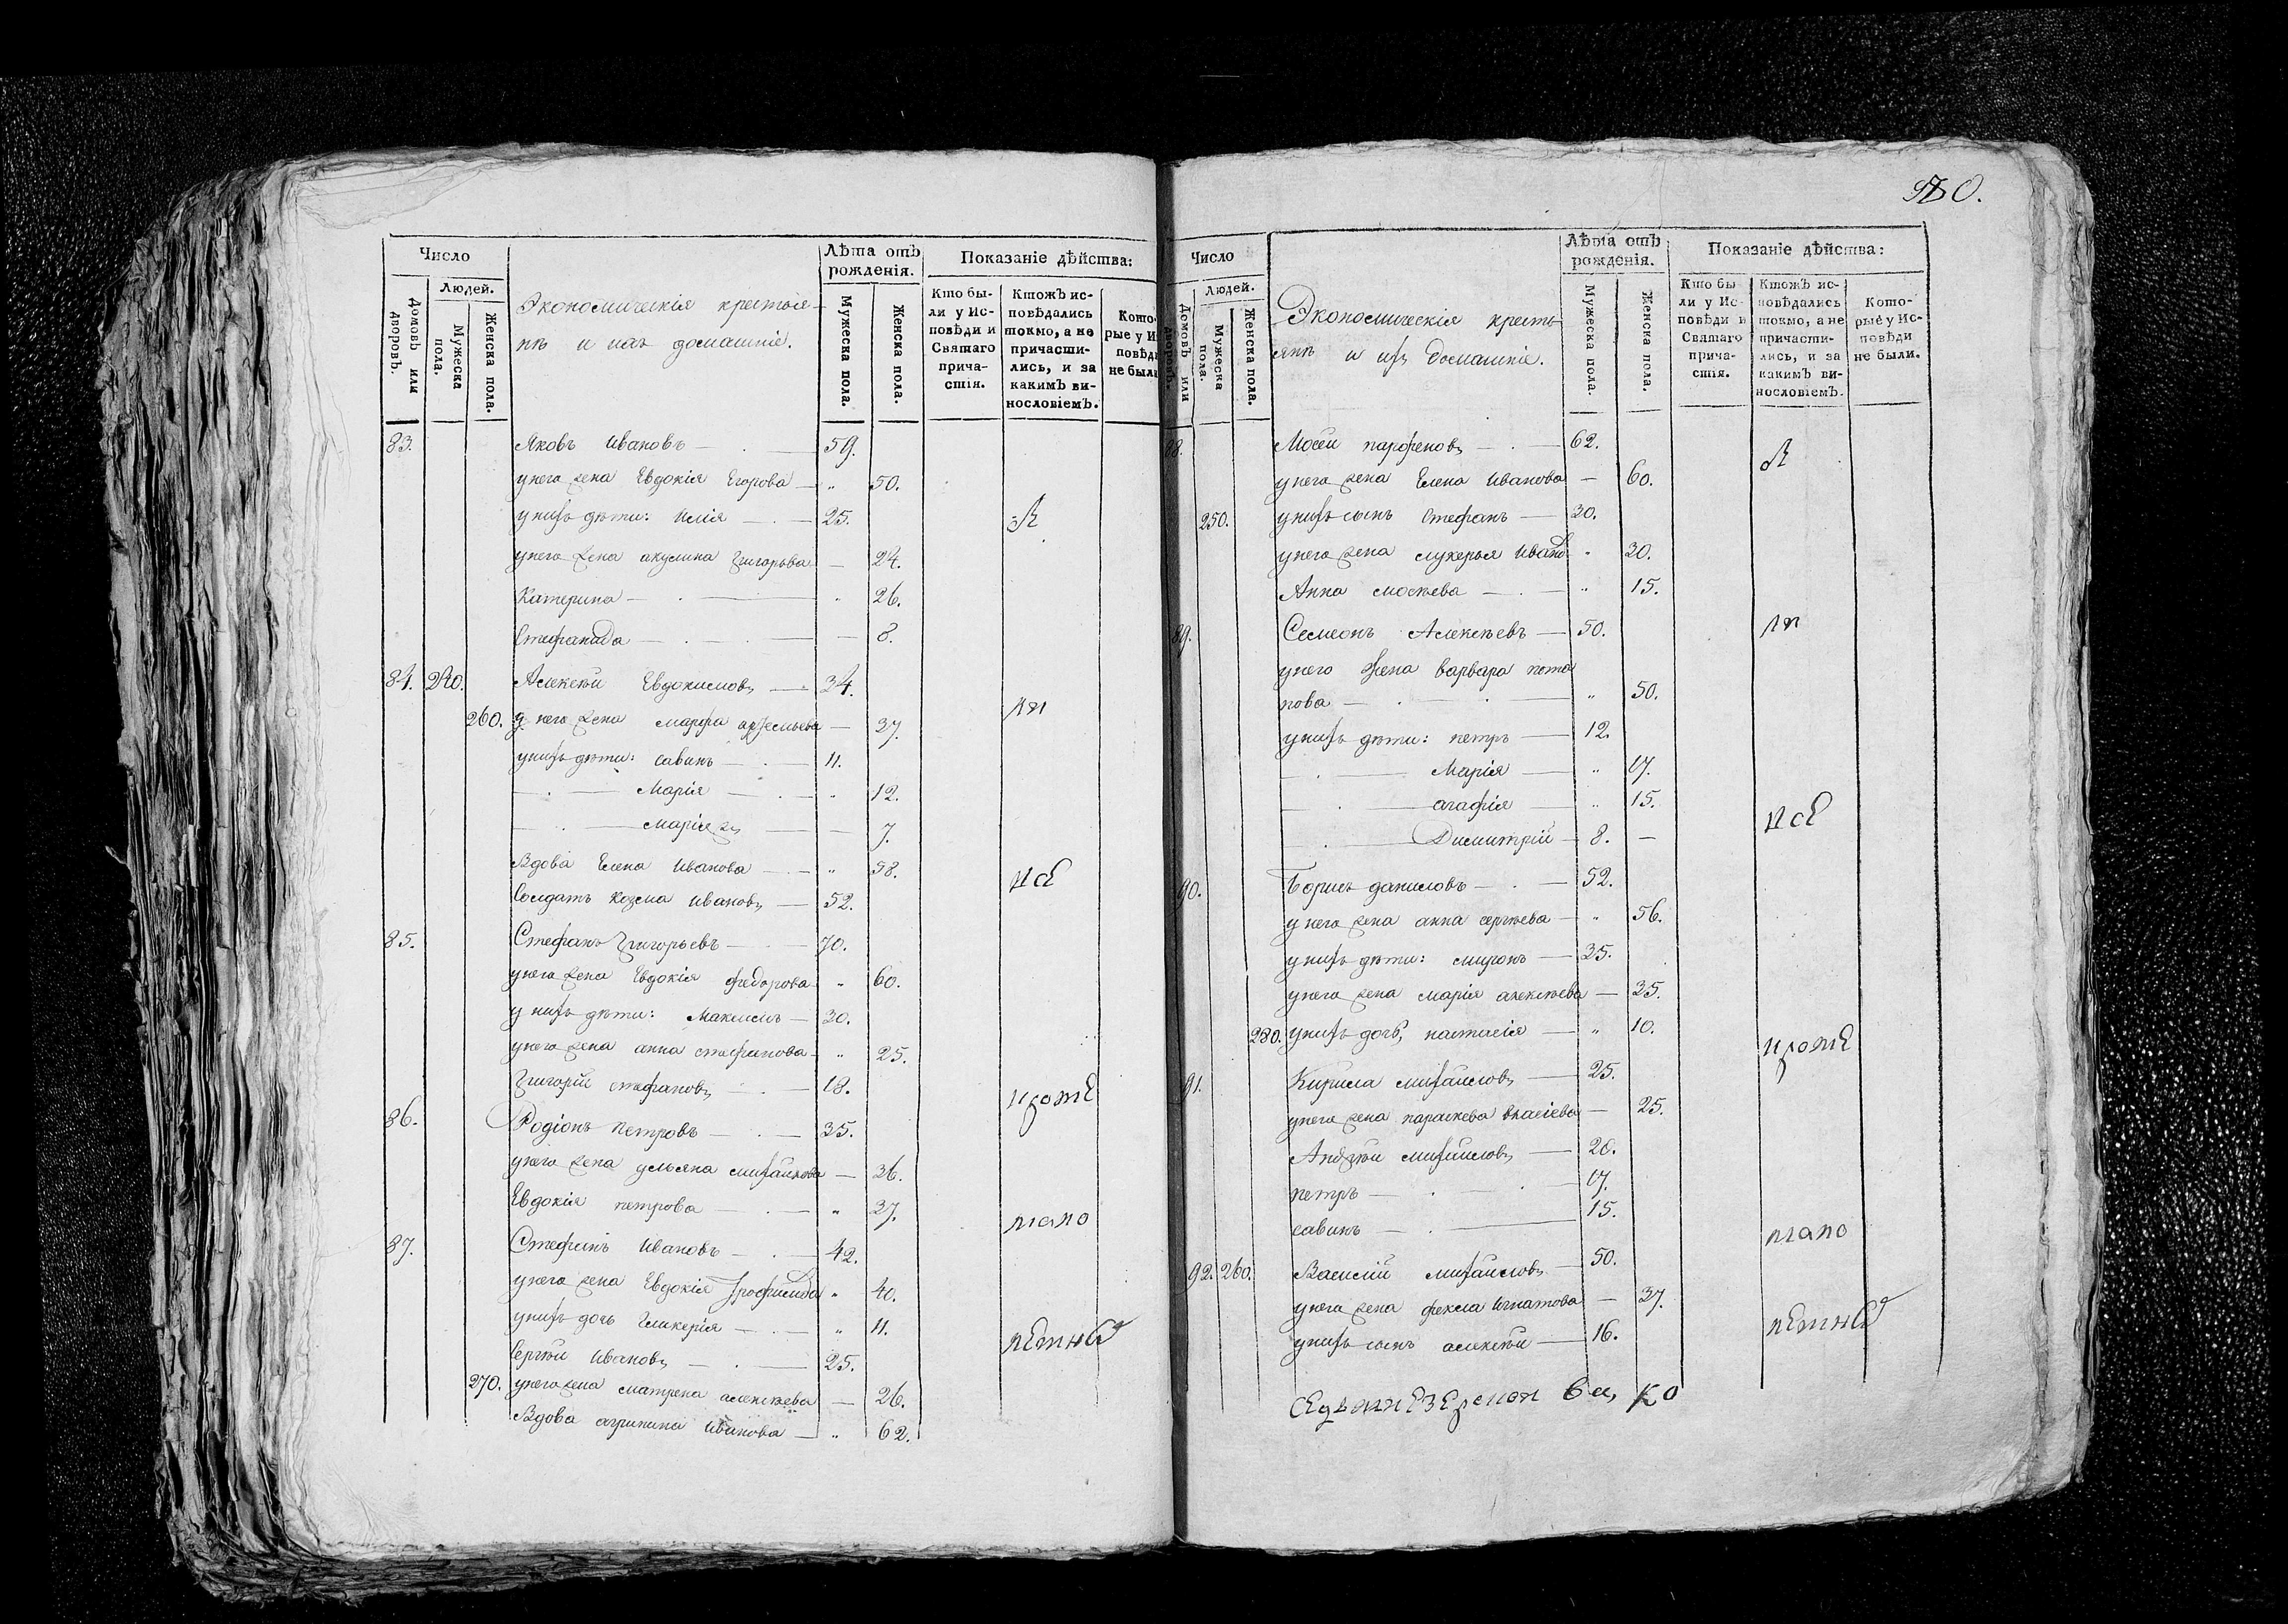 Число
Людей.
Домовъ или дворовъ.
Мужеска пола.
Женска пола.
Экономическія крестья-
нѣ и ихъ домашніе.
Лѣта отъ рожденія.
Мужеска пола.
Женска пола.
Показаніе дѣйства:
Кто бы-
ли у Ис-
повѣди и
Святаго
прича-
стія.
Ктожъ ис-
повѣдались
токмо, а не
причасти-
лись, и за
какимъ ви-
нословіемъ.
Кото-
рые у И
повѣд
не был
83. Яковъ Ивановъ — 59.
у него жена Евдокія Егорова — „ 50.
у нихъ дѣти: Илія — 25.
у него жена акулина Григорьва — 24.
Катерина — „ 26.
Стефанида — 8.
84. Алексѣй Евдокимовъ — 34.
260. у него жена марфа артемьева — 37.
у нихъ дѣти: савинъ — 11.
Марія — „ 12.
Марія — 7.
Вдова Елена Иванова — „ 58.
Солдатъ Козма Ивановъ — 52.
85. Стефанъ Григорьевъ — 70.
у него жена Евдокія федорова „ 60.
у нихъ дѣти: Максимъ — 30.
у него жена анна стефанова — „ 25.
Григорій стефановъ — 18.
86. Родіонъ Петровъ — 35.
у него жена ульяна михайлова — 36.
Евдокія петрова — „ 37.
87. Стефанъ Ивановъ — 42.
у него жена Евдокія „ 40.
у нихъ дочь Гликерія — „ 11.
Сергѣй Ивановъ — 25.
270. у него жена матрена алексѣева — 26.
Вдова агрипина Иванова — „ 62.
Число
Людей.
Домовъ или дворовъ.
Мужеска пола.
Женска пола.
Экономическія кресть-
янѣ и ихъ домашніе.
Лѣта отъ рожденія.
Мужеска пола.
Женска пола.
Показаніе дѣйства:
Кто бы
ли у Ис-
повѣди и
Святаго
прича-
стія.
Ктожъ ис-
повѣдались
токмо, а не
причасти-
лись, и за
какимъ ви-
нословіемъ.
Кото-
рые у Ис-
повѣди
не были.
88. Мосей парфеновъ — 62.
у него жена Елена Иванова — 60.
250. у нихъ сынъ Стефанъ — 30.
у него жена лукерья Иванов „ 30.
Анна мосѣева — „ 15.
89. Семеонъ Алексѣевъ — 50.
у него жена варвара пота
пова — „ 50.
у нихъ дѣти: петръ — 12.
Марія — „ 17.
агафія — „ 15.
Димитрій — 8. —
90. Борисъ даниловъ — 52.
у него жена анна сергѣева — „ 56.
у нихъ дѣти: миронъ — 35.
у него жена марія алексѣева — 35.
280. у нихъ дочь настасія — „ 10.
91. Кирила михайловъ — 25.
у него жена параскева власіева — 25.
Андрѣй михайловъ — 20.
петръ — 17.
савинъ — 15.
92. 260. Василій михайловъ — 50.
у него жена фекла Игнатова — 37.
у нихъ сынъ алексѣй — 16.